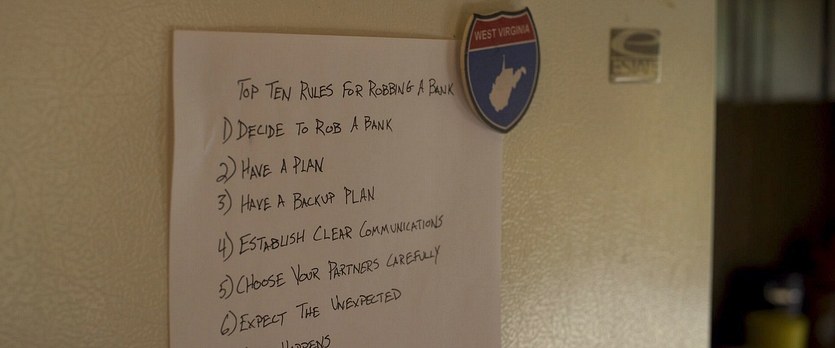 TOP TEN RULES FOR ROBBING A BANK
1) DECIDE TO ROB A BANK
2) HAVE A PLAN
3) HAVE A BACKUP PLAN
4) ESTABLISH CLEAR COMMUNICATIONS
5) CHOOSE YOUR PARTNERS CAREFULLY
6) EXPECT THE UNEXPECTED
HAPPENS
WEST VIRGINIA
ESTATE